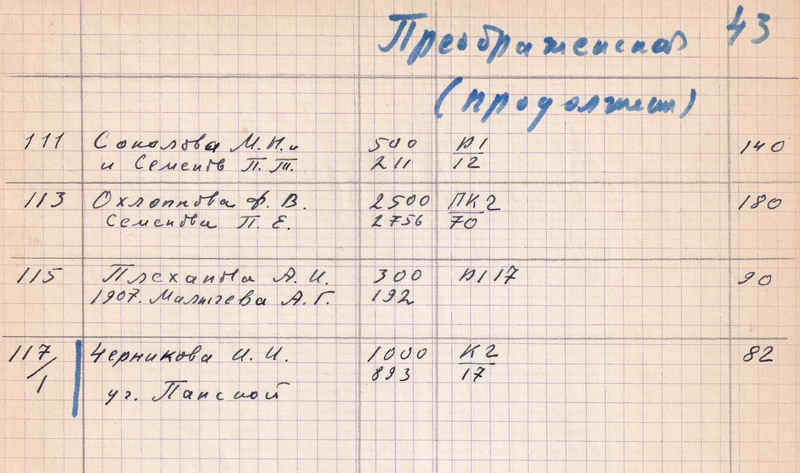 Преображенская 43
(продолжен)
111 Соколова М. Н. и 500 Д1 140
и Семенов П. Т. 211 12
113 Охлопкова Ф. В. 2500 ПК2 180
Семенова П. Е. 2756 70
115 Плеханова А. И. 300 Д1 17 90
1907. Малышева А. Г. 192
117 Черникова И. И. 1000 К2 82
/1 893 17
уг. Панской